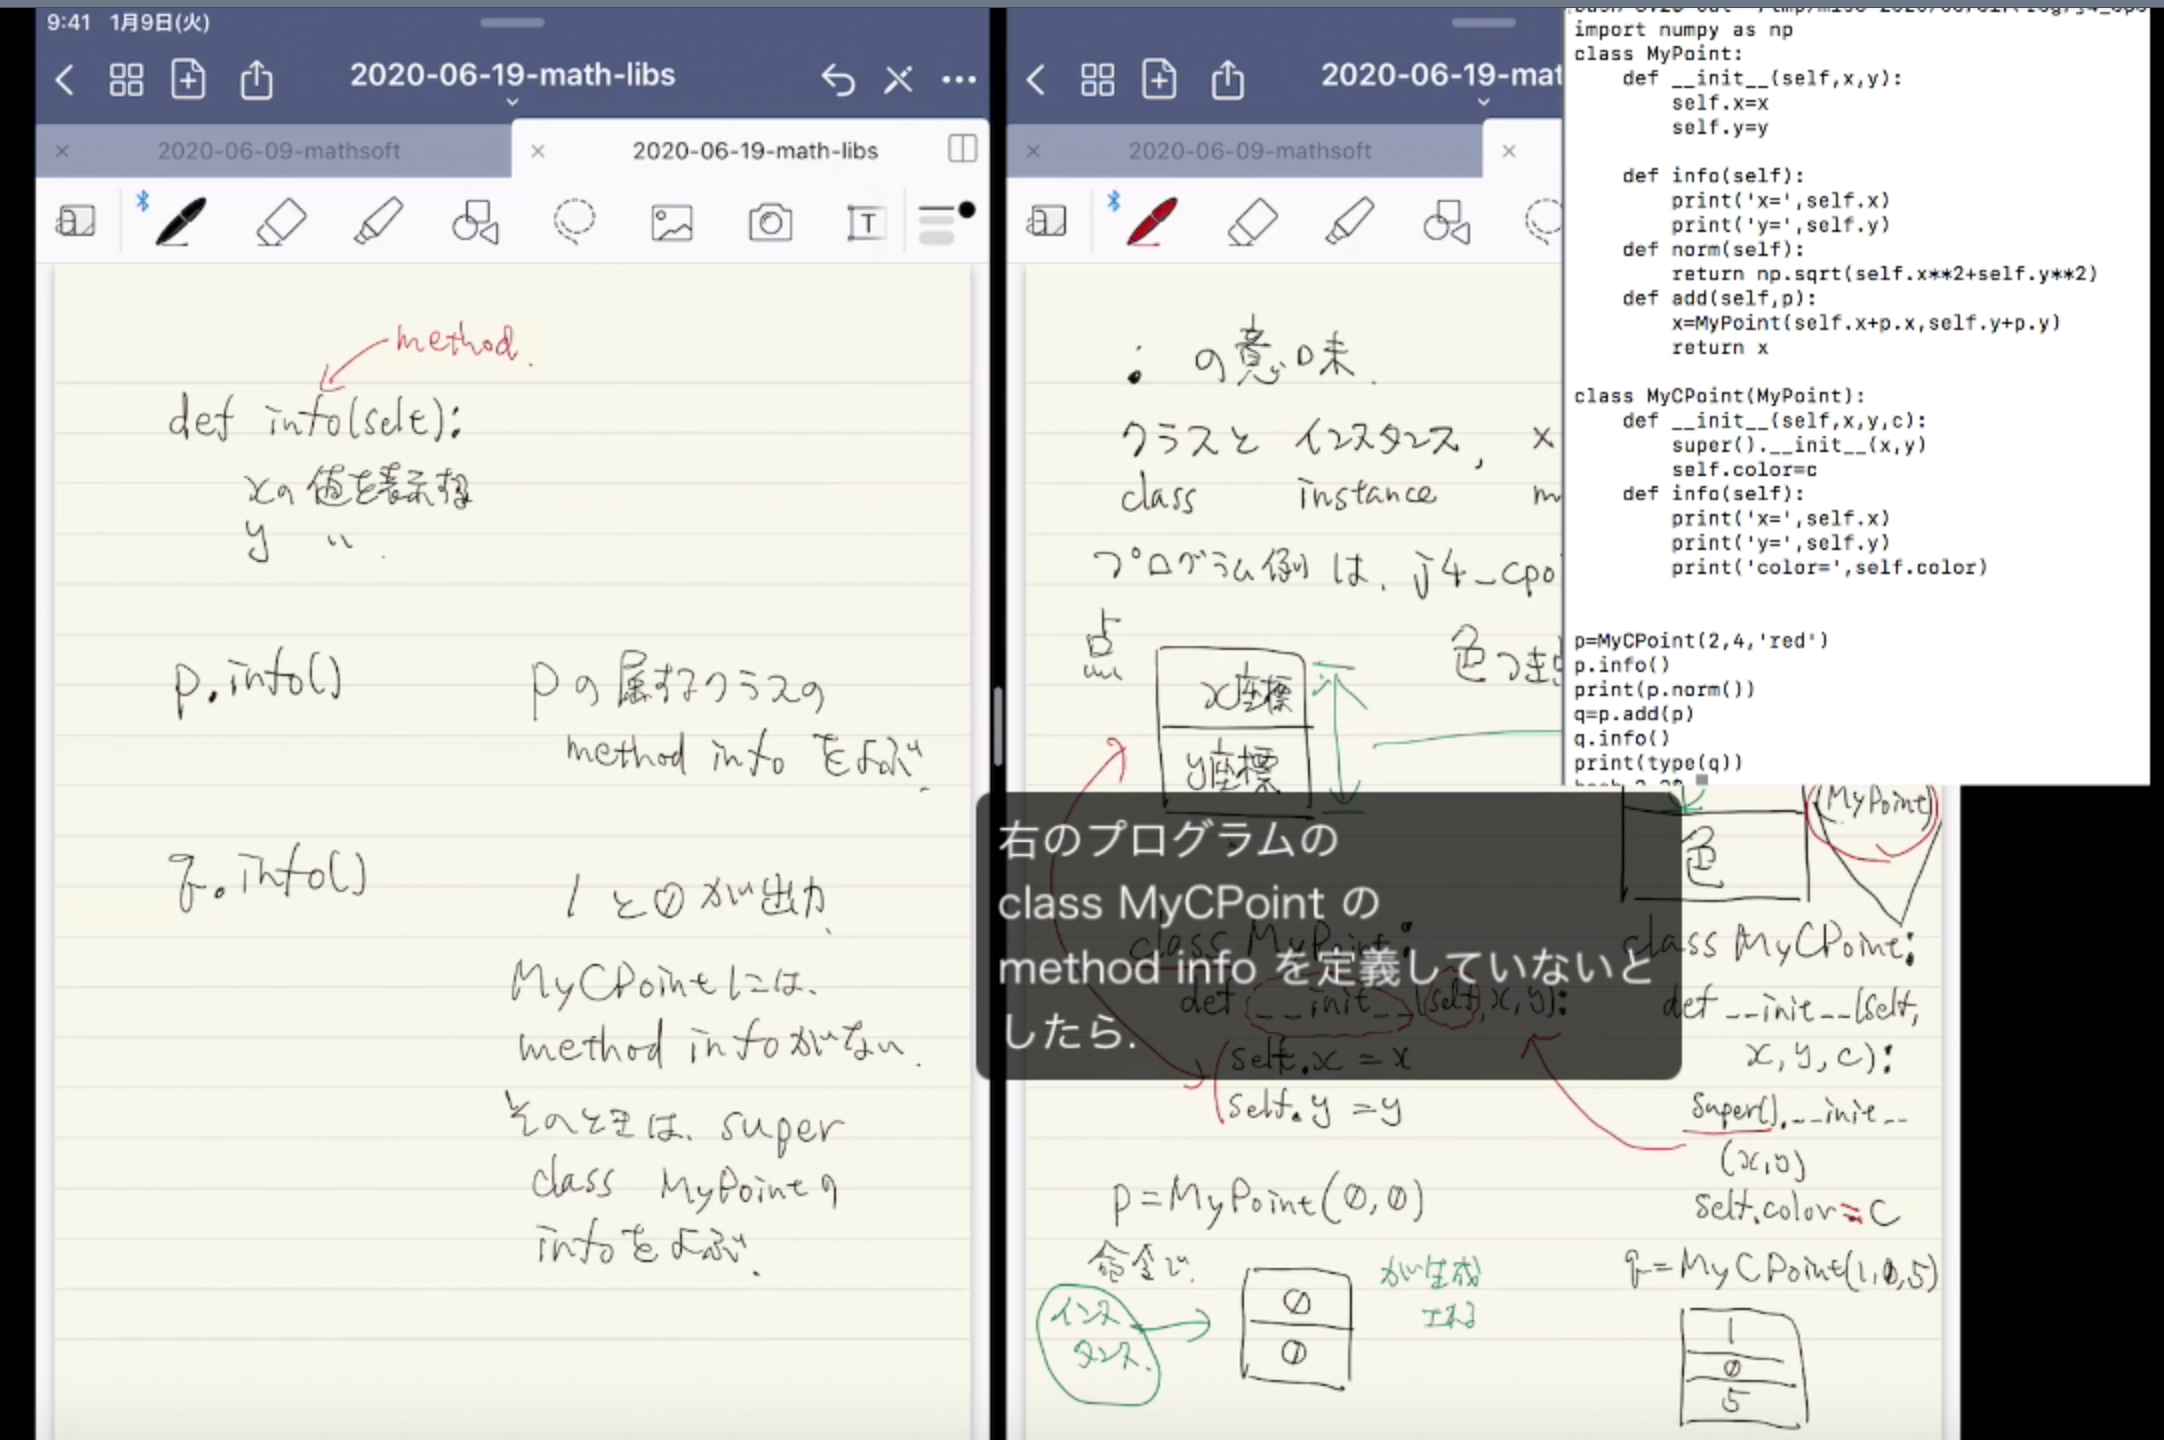 9:41 1月9日(火)
2020-06-19-math-libs
2020-06-09-mathsoft
2020-06-19-math-libs
method.
def info(self):
xの値を表示する
y 〃.
p.info()
pの属するクラスの
method info をよぶ.
q.info()
1 と 0 が出力.
MyCPointには、
method infoがない.
そのときは、super
class MyPointの
infoをよぶ.
2020-06-19-mat
2020-06-09-mathsoft
: の意味.
クラスと インスタンス, x
class instance m
プログラム例は、j4_cpo
点
x座標
y座標
色つき
(MyPoint)
色
class MyPoint:
def __init__(self,x,y):
self.x = x
self.y = y
class MyCPoint:
def __init__(self,
x,y,c):
super().__init__
(x,y)
self.color = c
p=MyPoint(0,0)
命令で
インス
タンス.
0
0
が生成
される
q=MyCPoint(1,0,5)
1
0
5
import numpy as np
class MyPoint:
    def __init__(self,x,y):
        self.x=x
        self.y=y
    def info(self):
        print('x=',self.x)
        print('y=',self.y)
    def norm(self):
        return np.sqrt(self.x**2+self.y**2)
    def add(self,p):
        x=MyPoint(self.x+p.x,self.y+p.y)
        return x
class MyCPoint(MyPoint):
    def __init__(self,x,y,c):
        super().__init__(x,y)
        self.color=c
    def info(self):
        print('x=',self.x)
        print('y=',self.y)
        print('color=',self.color)
p=MyCPoint(2,4,'red')
p.info()
print(p.norm())
q=p.add(p)
q.info()
print(type(q))
右のプログラムの
class MyCPoint の
method info を定義していないと
したら.